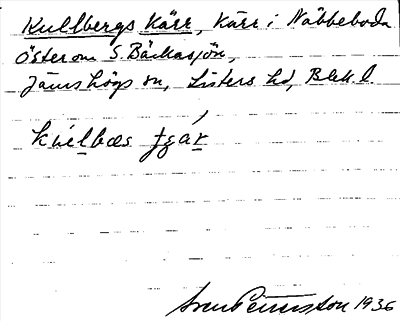 Kullbergs Kärr, Kärr i Näbbeboda
öster om S. Bäckasjön,
Jämshögs sn, Listers hd, Blek. l.
Sven Pettersson 1936